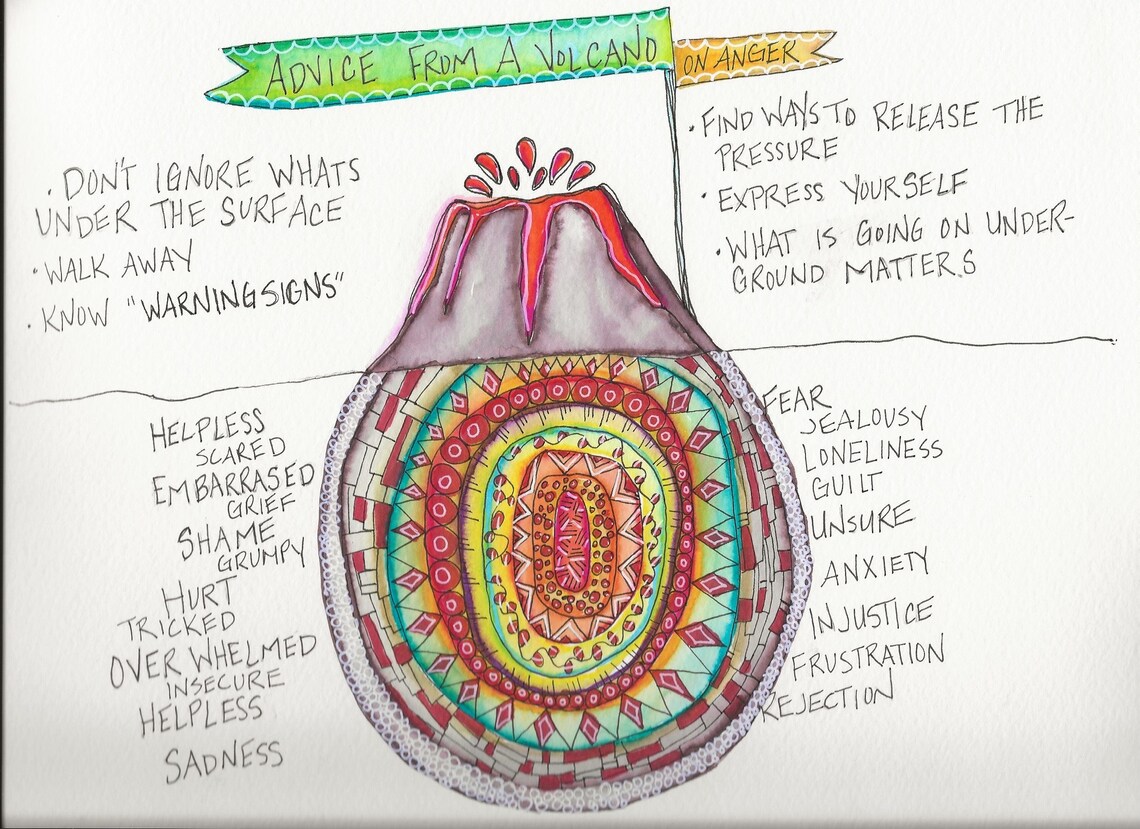 ADVICE FROM A VOLCANO
ON ANGER
· DON'T IGNORE WHATS
UNDER THE SURFACE
· WALK AWAY
· KNOW "WARNING SIGNS"
· FIND WAYS TO RELEASE THE
PRESSURE
· EXPRESS YOURSELF
· WHAT IS GOING ON UNDER-
GROUND MATTERS
HELPLESS
SCARED
EMBARRASED
GRIEF
SHAME
GRUMPY
HURT
TRICKED
OVER WHELMED
INSECURE
HELPLESS
SADNESS
FEAR
JEALOUSY
LONELINESS
GUILT
UNSURE
ANXIETY
INJUSTICE
FRUSTRATION
REJECTION